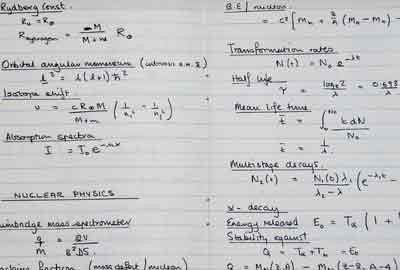 Rydberg Const.
R₀ = R∞
R hydrogen = M / (M + m) R∞
Orbital angular momentum
l² = l(l+1)ħ²
Isotope shift.
υ = cR∞M / (M+m) (1/n₁² − 1/n₂²)
Absorption spectra
I = I₀ e
NUCLEAR PHYSICS
mass spectrometer
q/M = 2V / B²
fraction (mass defect/nucleon)
B.E/nucleon
= c² [Mn + (Mn − Mn) −
Transformation rates
N(t) = N₀ e^-λt
Half life
τ = loge2 / λ = 0.693
Mean life time
t̄ = ∫ t dN / N₀
t̄ = 1/λ
Multistage decays.
N₂(t) = N₁(0) λ₁ / (λ₂ − λ) (e^-λ₁t −
α- decay
Energy released E₀ = Tα (1 +
Stability against
Q = Tα + Tb = E₀